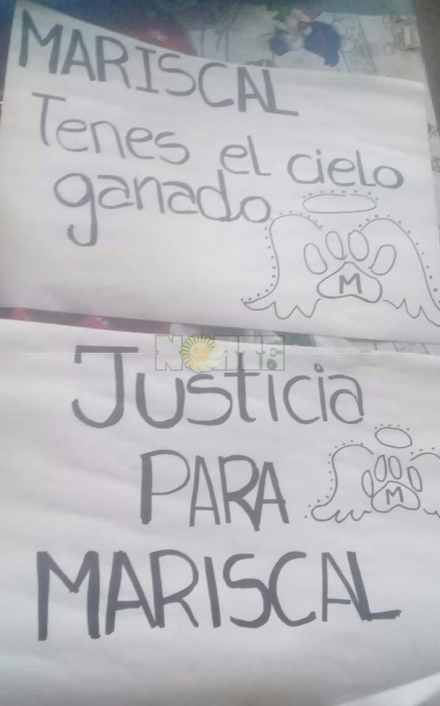 MARISCAL
Tenes el cielo
ganado
M
NORTE
Justicia
PARA
M
MARISCAL